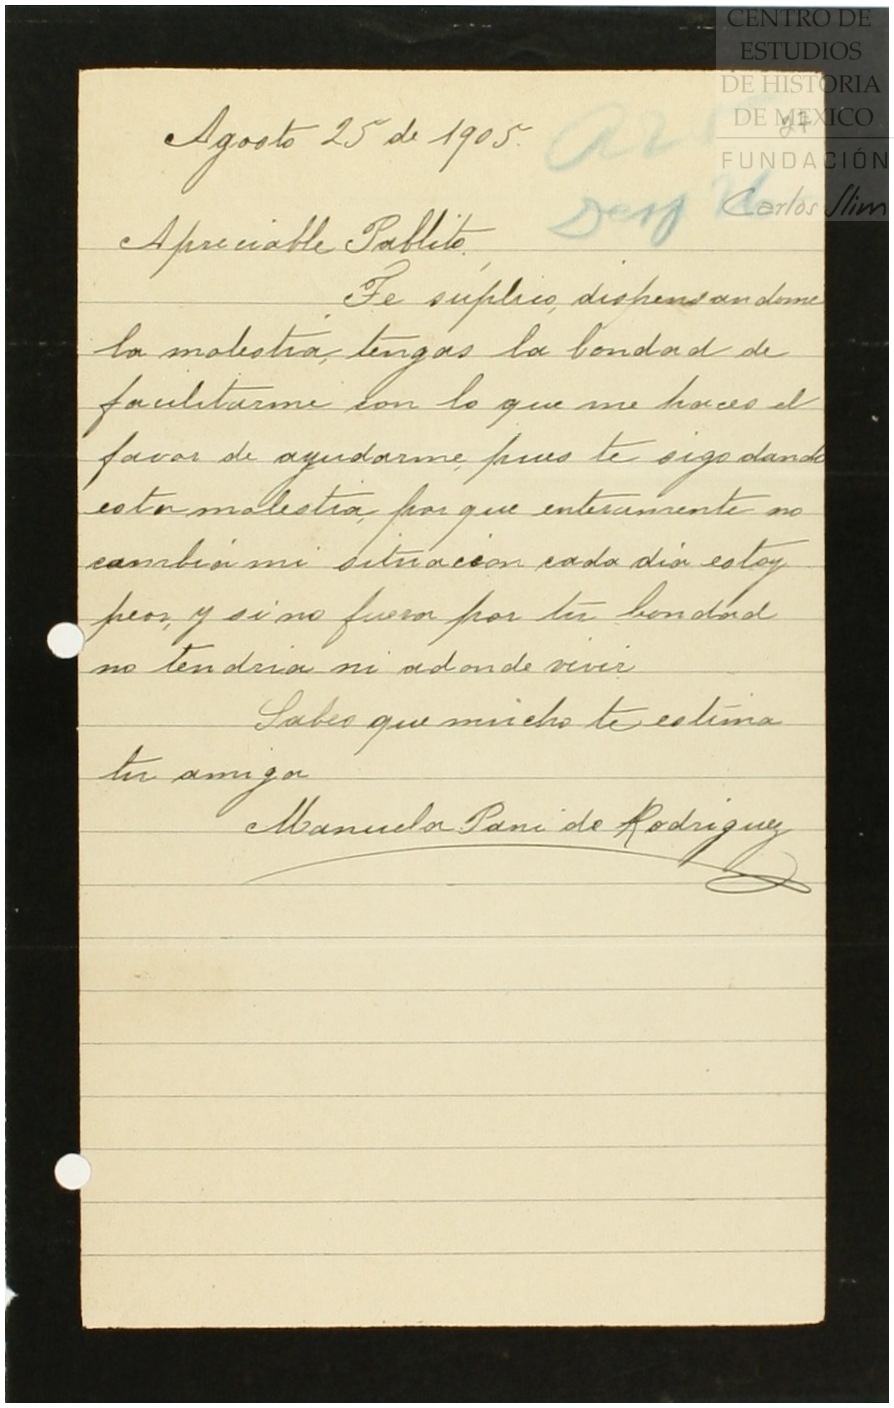 CENTRO DE
ESTUDIOS
DE HISTORIA
DE MEXICO
FUNDACIÓN
Carlos Slim
27
Agosto 25 de 1905.
Apreciable Pablito.
Te súplico, dispensandome
la molestia, tengas la bondad de
facilitarme con lo que me haces el
favor de ayudarme, pues te sigo dando
esta molestia, por que enteramente no
cambia mi situacion cada dia estoy
peor, y si no fuera por tu bondad
no tendria ni adonde vivir
Sabes que mucho te estima
tu amiga
Manuela Pani de Rodriguez